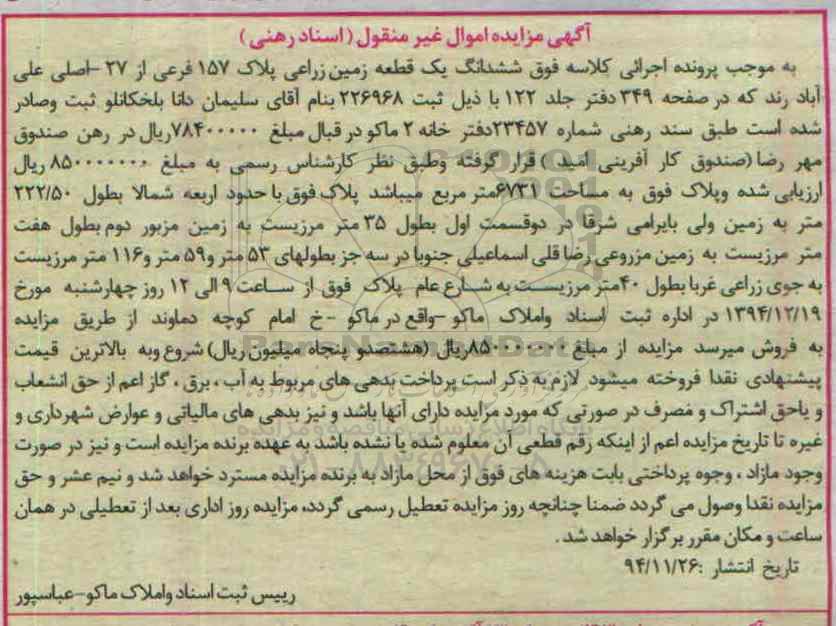 آگهی مزایده اموال غیر منقول (اسناد رهنی)
به موجب پرونده اجرائی کلاسه فوق ششدانگ یک قطعه زمین زراعی پلاک ۱۵۷ فرعی از ۲۷ -اصلی علی
آباد رند که در صفحه ۳۴۹ دفتر جلد ۱۲۲ با ذیل ثبت ۲۲۶۹۶۸ بنام آقای سلیمان دانا بلخکانلو ثبت وصادر
شده است طبق سند رهنی شماره ۲۳۴۵۷دفتر خانه ۲ ماکو در قبال مبلغ ۷۸۴۰۰۰۰۰ریال در رهن صندوق
مهر رضا (صندوق کار آفرینی امید ) قرار گرفته وطبق نظر کارشناس رسمی به مبلغ ۸۵۰۰۰۰۰۰۰ ریال
ارزیابی شده وپلاک فوق به مساحت ۶۷۳۱متر مربع میباشد پلاک فوق با حدود اربعه شمالا بطول ۲۲۲/۵۰
متر به زمین ولی بایرامی شرقا در دوقسمت اول بطول ۳۵ متر مرزیست به زمین مزبور دوم بطول هفت
متر مرزیست به زمین مزروعی رضا قلی اسماعیلی جنوبا در سه جز بطولهای ۵۳ متر و۵۹ متر و۱۱۶ متر مرزیست
به جوی زراعی غربا بطول ۴۰متر مرزیست به شارع عام پلاک فوق از ساعت ۹ الی ۱۲ روز چهارشنبه مورخ
۱۳۹۴/۱۲/۱۹ در اداره ثبت اسناد واملاک ماکو -واقع در ماکو -خ امام کوچه دماوند از طریق مزایده
به فروش میرسد مزایده از مبلغ ۸۵۰۰۰۰۰۰۰ریال (هشتصدو پنجاه میلیون ریال) شروع وبه بالاترین قیمت
پیشنهادی نقدا فروخته میشود لازم به ذکر است پرداخت بدهی های مربوط به آب ، برق ، گاز اعم از حق انشعاب
و یاحق اشتراک و مصرف در صورتی که مورد مزایده دارای آنها باشد و نیز بدهی های مالیاتی و عوارض شهرداری و
غیره تا تاریخ مزایده اعم از اینکه رقم قطعی آن معلوم شده یا نشده باشد به عهده برنده مزایده است و نیز در صورت
وجود مازاد ، وجوه پرداختی بابت هزینه های فوق از محل مازاد به برنده مزایده مسترد خواهد شد و نیم عشر و حق
مزایده نقدا وصول می گردد ضمنا چنانچه روز مزایده تعطیل رسمی گردد، مزایده روز اداری بعد از تعطیلی در همان
ساعت و مکان مقرر برگزار خواهد شد .
تاریخ انتشار :۹۴/۱۱/۲۶
رییس ثبت اسناد واملاک ماکو-عباسپور